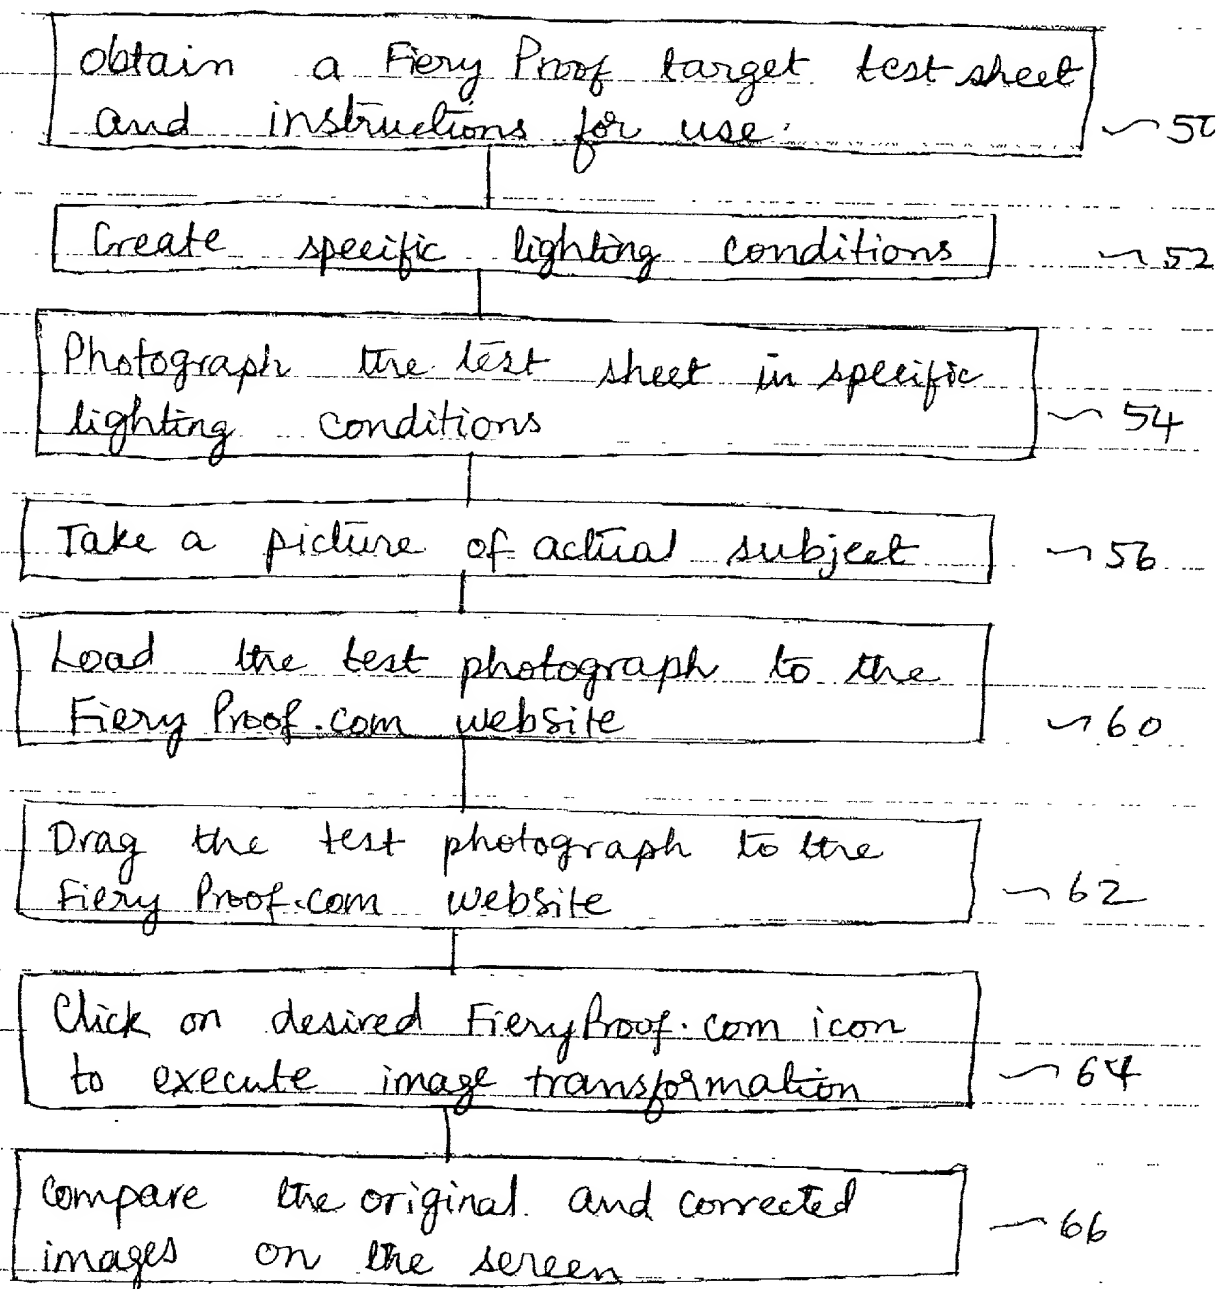 obtain a Fiery Proof target test sheet
and instructions for use.
50
Create specific lighting conditions
52
Photograph the test sheet in specific
lighting conditions
54
Take a picture of actual subject
56
Load the test photograph to the
Fiery Proof.com website
60
Drag the test photograph to the
Fiery Proof.com website
62
Click on desired FieryProof.com icon
to execute image transformation
64
Compare the original and corrected
images on the screen
66